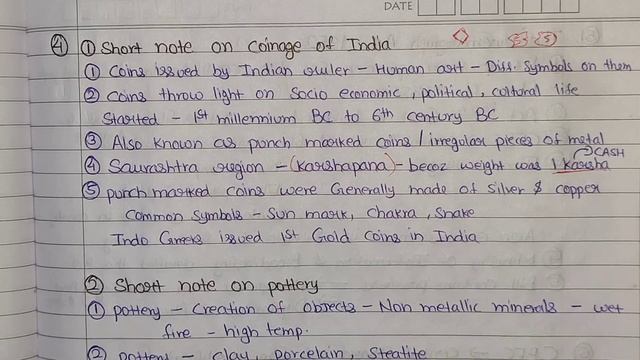 DATE
④ ① Short note on coinage of India
① Coins issued by Indian ruler - Human art - Diff. Symbols on them
② Coins throw light on Socio economic, political, cultural life
Started - 1st millennium BC to 6th century BC
③ Also known as punch marked coins / irregular pieces of metal
CASH
④ Saurashtra region - (karshapana) - becoz weight was 1 karsha
⑤ punch marked coins were Generally made of silver & copper
Common symbols - Sun mark, Chakra, Snake
Indo Greeks issued 1st Gold coins in India
② Short note on pottery
① pottery - Creation of objects - Non metallic minerals - wet
fire - high temp.
② pottery - clay, porcelain, Steatite